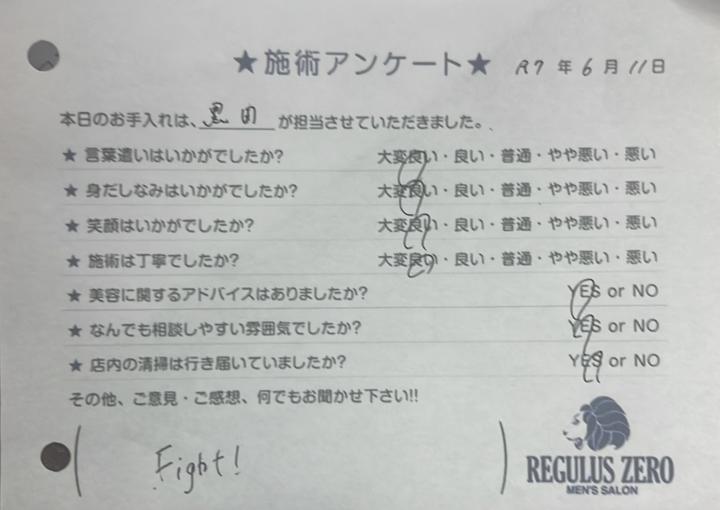 ★施術アンケート★ R7年6月11日
本日のお手入れは、黒田が担当させていただきました。
★ 言葉遣いはいかがでしたか? 大変良い・良い・普通・やや悪い・悪い
★ 身だしなみはいかがでしたか? 大変良い・良い・普通・やや悪い・悪い
★ 笑顔はいかがでしたか? 大変良い・良い・普通・やや悪い・悪い
★ 施術は丁寧でしたか? 大変良い・良い・普通・やや悪い・悪い
★ 美容に関するアドバイスはありましたか? YES or NO
★ なんでも相談しやすい雰囲気でしたか? YES or NO
★ 店内の清掃は行き届いていましたか? YES or NO
その他、ご意見・ご感想、何でもお聞かせ下さい!!
Fight!
REGULUS ZERO
MEN'S SALON